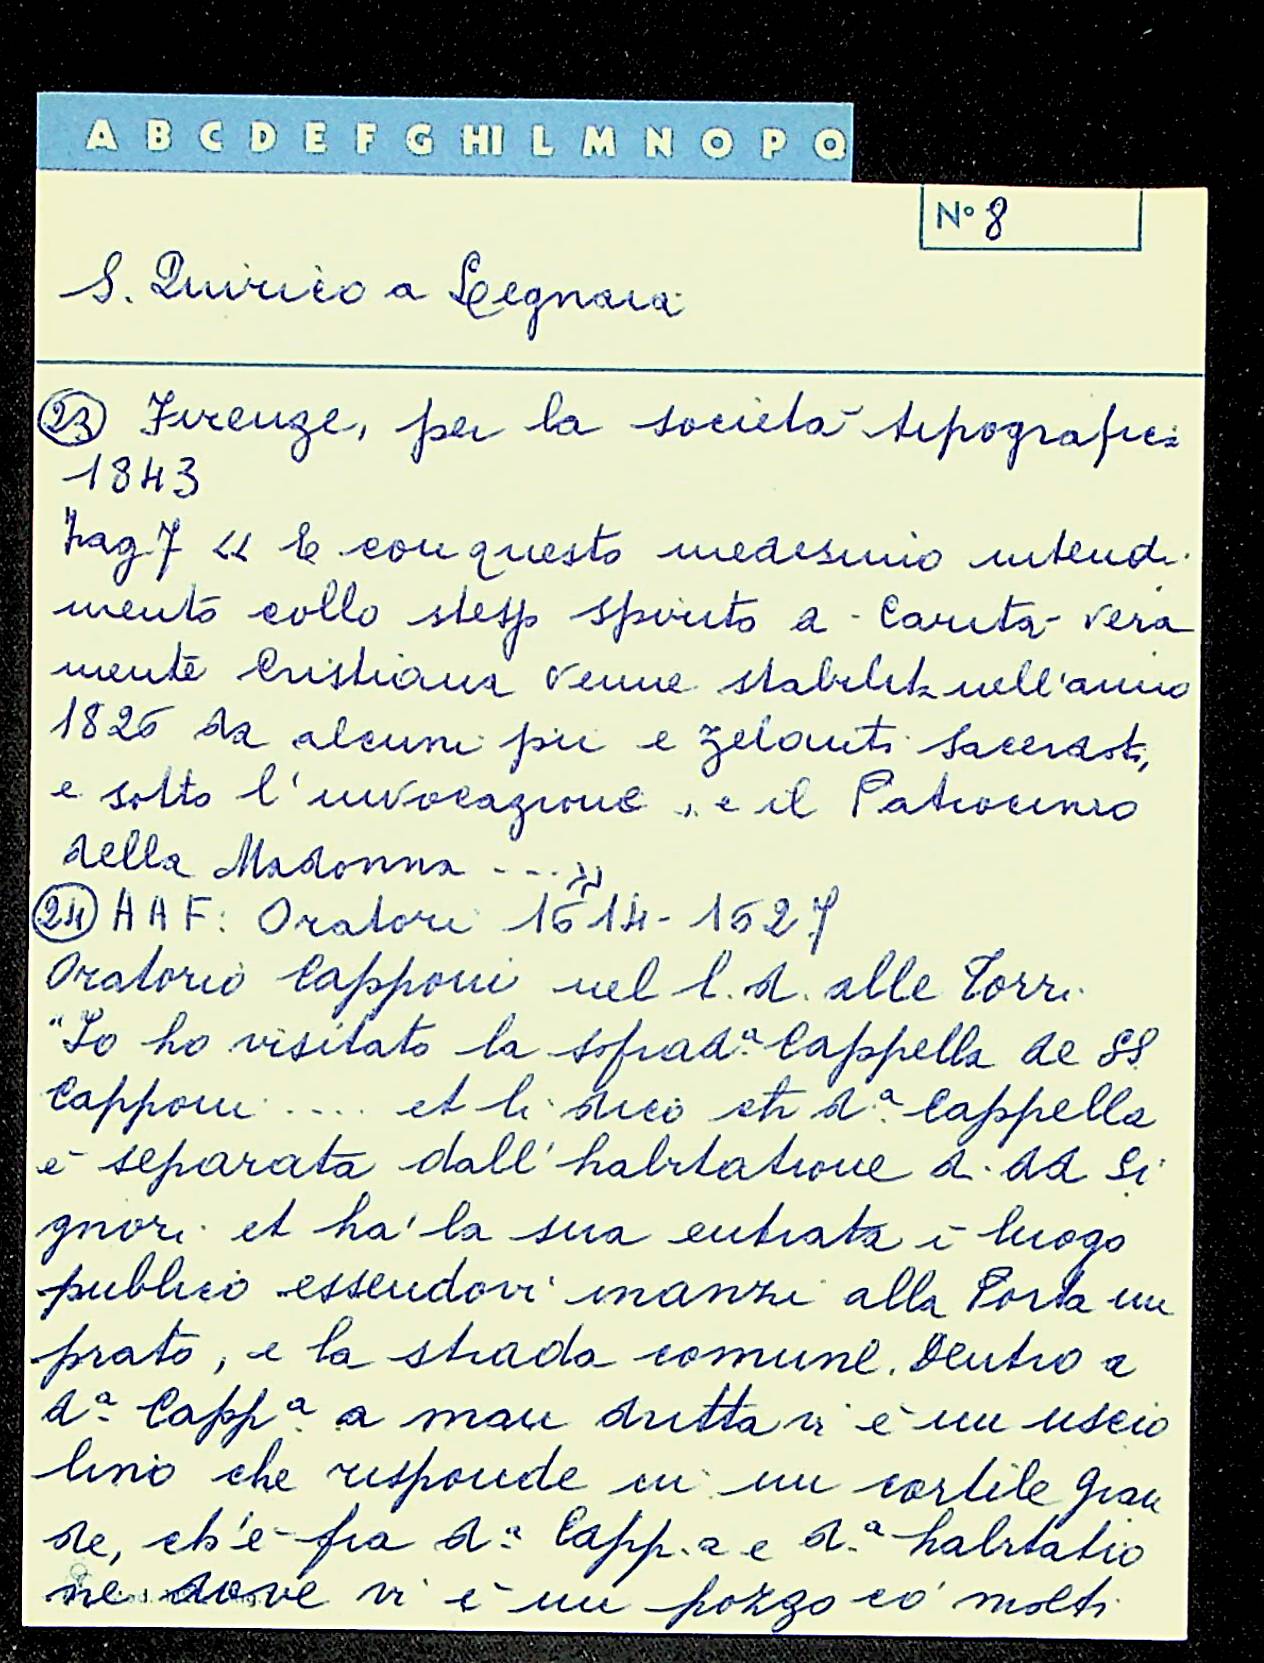 A B C D E F G HI L M N O P Q
N° 8
S. Quirico a Legnaia
23 Firenze, per la società tipografica
1843
Pag 7 « E con questo medesimo intendi
mento collo stesso spirito a Carità vera
mente Cristiana venne stabilita nell'anno
1826 da alcuni pii e zelanti Sacerdoti,
e sotto l'invocazione, e il Patrocinio
della Madonna ... »
24 AAF: Oratori 1614-1627
Oratorio Capponi nel l.d. alle Torri
"Io ho visitato la soprad.a Cappella de SS
Capponi .... et li dico ch d.a Cappella
è separata dall'habitatione d. dd Si
gnori et ha' la sua entrata ī luogo
publico essendovi inanzi alla Porta un
prato, e la strada comune. Dentro a
d.a Capp.a a man dritta vi è un uscio
lino che risponde in un cortile gran
de, ch'è fra d.a Capp.a e d.a habitatio
ne dove vi è un pozzo cō molti